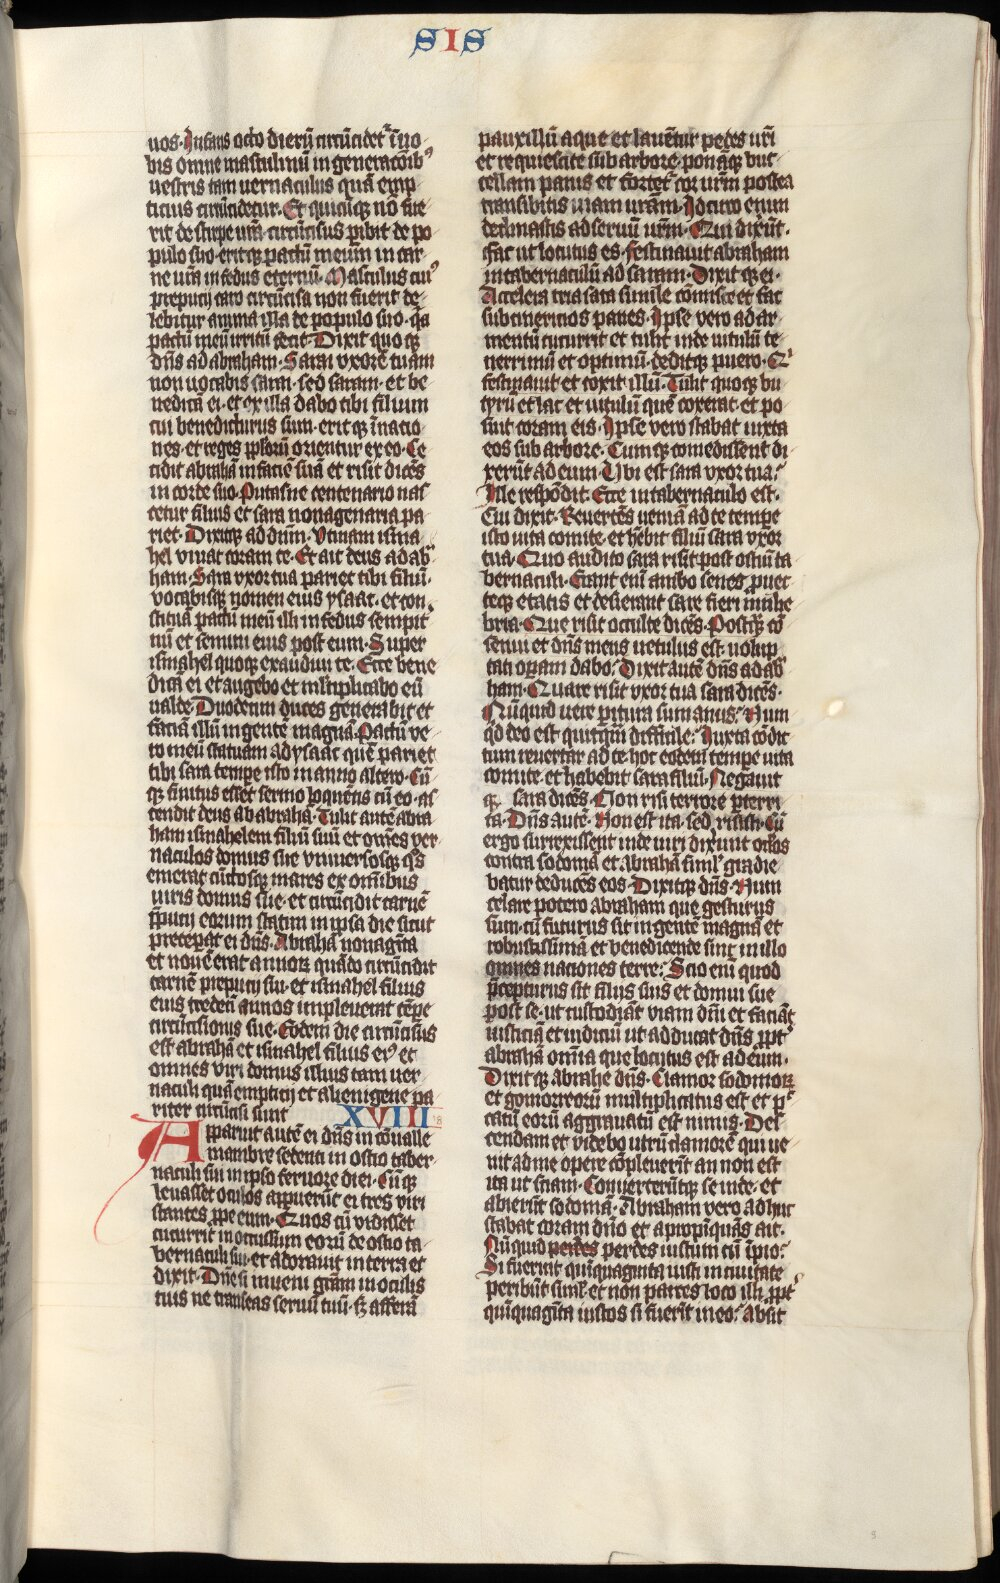 SIS
uos. Infans octo dierū circūcidet᷑ ī uo
bis omne masculinū in generacōībꝰ
uestris tam uernaculus quā emp
ticius circūcidetur. Et quicūqꝫ nō fue
rit de stirpe urā circūcisus ꝑibit de po
pulo suo. eritqꝫ pactū meum in car
ne urā in fedus eternū. Masculus cuiꝰ
prepucij caro circūcisa non fuerit de
lebitur anima illa de populo suo. qa
pactū meū irritū fecit. Dixit quoqꝫ
dn̄s ad abraham. Sarai vxorē tuam
non uocabis sarai. sed saram. et be
nedicā ei. et ex illa dabo tibi filium
cui benedicturus sum. erit qꝫ ī nacio
nes. et reges pplorū orientur ex eo. Ce
cidit abrahā in faciē suā et risit dicēs
in corde suo. Putasne centenario nas
cetur filius et sara nonagenaria pa
riet. Dixitqꝫ ad dūm. Vtinam isma
hel viuat coram te. Et ait deus ad abᵃ
ham. Sara vxor tua pariet tibi filiū.
vocabisqꝫ nomen eius ysaac. et con
stituā pactū meū illi in fedus sempit᷑
nū et semini eius post eum. Super
ismahel quoqꝫ exaudiui te. Ecce bene
dicā ei et augebo et ml̄tiplicabo eū
ualde. Duodecim duces generabit et
faciā illū in gentē magnā. Pactū ve
ro meū statuam ad ysaac quē pariet
tibi sara tempe isto in anno altero. Cū
qꝫ finitus esset sermo loquētis cū eo. as
cendit deus ab abrahā. Tulit autē abra
ham ismahelem filiū suū et om̄es ver
naculos domus sue vniuersosqꝫ q̊s
emerat cūctosqꝫ mares ex om̄ibus
uiris domus sue. et circūcidit carnē
p̄pucij eorum statim in ipsa die sicut
preceꝑat ei dn̄s. Abrahā nonagīta
et nouē erat annorꝝ quādo circūcidit
carnē prepucij sui. et ismahel filius
eius tredecī annos impleuerat tēpe
circūcisionis sue. Eodem die circūcisus
est abrahā et ismahel filius eiꝰ et
omnes viri domus illius tam uer
naculi quā empticij et alienigene pa
riter circūcisi sunt XVIII 18
Apparuit autē ei dn̄s in cōualle
mambre sedenti in ostio taber
naculi sui in ipso feruore diei. Cū qꝫ
leuasset oculos apparuerūt ei tres viri
stantes ꝓpe eum. Quos cū vidisset
cucurrit in occursum eorū de ostio ta
bernaculi sui. et adorauit in terra et
dixit. Dn̄e si inueni grām in oculis
tuis ne transeas seruū tuū. sꝫ afferā
pauxillū aque et lauētur pedes ur̄i
et requiescite sub arbore. ponāqꝫ buc
cellam panis et fortet᷑ cor urm̄ postea
transibitis uiam uram̄. Idcirco enim
declinastis ad seruū urm̄. Qui dixūt.
Fac ut locutus es. Festinauit abraham
in tabernaculū ad saram. Dixit qꝫ ei.
Accelera tria sata simile cōmisce et fac
subcinericios panes. Ipse vero ad ar
mentū cucurrit et tulit inde uitulū te
nerrimū et optimū. deditqꝫ puero. Qⁱ
festinauit et coxit illū. Tulit quoqꝫ bu
tyrū et lac et uitulū quē coxerat. et po
suit coram eis. Ipse vero stabat iuxta
eos sub arbore. Cumqꝫ comedissent di
xerūt ad eum. Vbi est sara vxor tua?
Ille respōdit. Ecce in tabernaculo est.
Cui dixit. Reuertēs veniā ad te tempe
isto uita comite. et hēbit filiū sara vxor
tua. Quo audito sara risit post ostiū ta
bernaculi. Erant enī ambo senes ꝓuec
teqꝫ etatis et desierant sare fieri mulie
bria. Que risit occulte dicēs. Postqꝫ cō
senui et dn̄s meus uetulus est. uolup
tati oꝑam dabo? Dixit autē dn̄s ad abᵃ
ham. Quare risit vxor tua sara dicēs.
Nūquid uere ꝑitura sum anus? Num
qd deo est quitqm̄ difficile? Iuxta cōdic
tum reuertar ad te hoc eodem tempe uita
comite et habebit sara filiū. Negauit
qꝫ sara dicēs. Non risi terrore ꝑterri
ta. Dn̄s autē. Non est ita. sed risisti. Cū
ergo surrexissent inde uiri dixerūt oclōs
contra sodomā et abrahā siml̄ gradie
batur deducēs eos. Dixitqꝫ dn̄s. Num
celare potero abraham que gesturus
sum. cū futurus sit in gentē magnā et
robustissimā et benedicende sint in illo
omnes naciones terre? Scio enī quod
p̄cepturus sit filijs suis et domui sue
post se. ut custodiāt viam dn̄i et faciāt
iusticiā et iudiciū ut adducat dn̄s ꝓpt᷑
abrahā om̄ia que locutus est ad eum.
Dixit qꝫ abrahe dn̄s. Clamor sodomorꝝ
et gomorreorū multiplicatus est et pᶜ
catū eorū aggrauatū est nimis. Des
cendam et videbo utrū clamorē qui ue
nit ad me opere cōpleuerīt an non est
ita ut sciam. Conuerterūtqꝫ se inde. et
abierūt sodomā. Abraham vero adhuc
stabat coram dn̄o et apropīquās ait.
Nūquid perdes perdes iustum cū īpio?
Si fuerint quīquaginta iusti in ciuitate
peribūt siml̄. et non parces loco illi ꝓpt᷑
quīquagīta iustos si fuerīt in eo? Absit